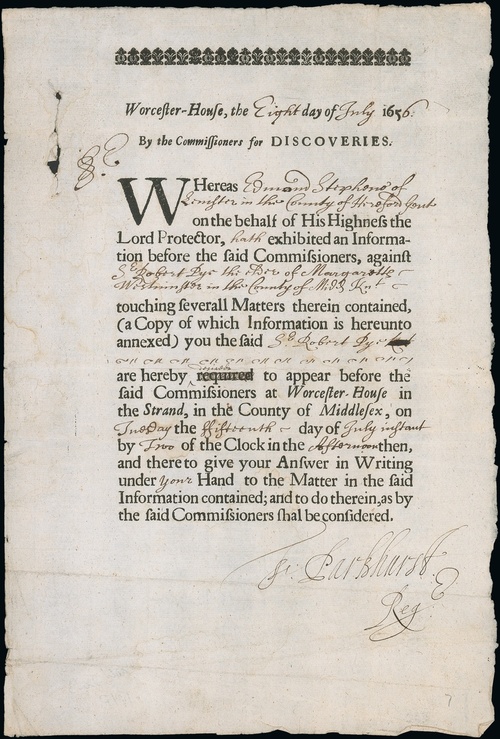 Worcester-House, the Eight day of July 1656.
By the Commissioners for DISCOVERIES.
WHereas Edmund Stephens of
Lemster in the County of Hereford gent
on the behalf of His Highness the
Lord Protector, hath exhibited an Informa-
tion before the said Commissioners, against
Sr. Robert Pye the elder of Margaretts
Westminster in the County of Midd Knt
touching severall Matters therein contained,
(a Copy of which Information is hereunto
annexed) you the said Sr. Robert Pye
are hereby required to appear before the
said Commissioners at Worcester-House in
the Strand, in the County of Middlesex, on
Tuesday the fifteenth day of July instant
by Two of the Clock in the Afternoon then,
and there to give your Answer in Writing
under your Hand to the Matter in the said
Information contained; and to do therein, as by
the said Commissioners shal be considered.
Parkhurst
Reg
7